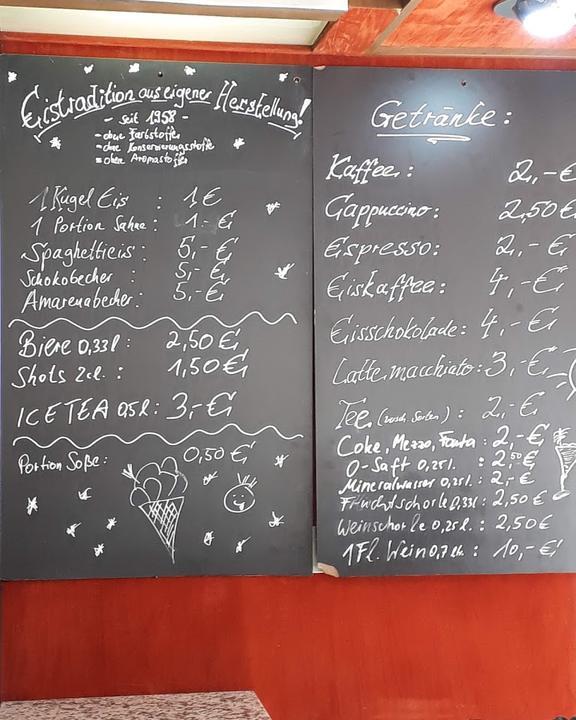 Eistradition aus eigener Herstellung!
- seit 1958 -
- ohne Farbstoffe
- ohne Konservierungsstoffe
- ohne Aromastoffe
1 Kugel Eis : 1 €
1 Portion Sahne : 1.- €
Spaghettieis : 5,- €
Schokobecher : 5,- €
Amarenabecher : 5,- €
Biere 0,33l : 2,50 €
Shots 2cl. : 1,50 €
ICE TEA 0,5l : 3,- €
Portion Soße : 0,50 €
Getränke :
Kaffee : 2,- €
Cappuccino : 2,50 €
Espresso : 2,- €
Eiskaffee : 4,- €
Eisschokolade : 4,- €
Latte macchiato : 3,- €
Tee (versch. Sorten) : 2,- €
Coke, Mezzo, Fanta : 2,- €
O-Saft 0,25l. : 2,50 €
Mineralwasser 0,25l. : 2,- €
Fruchtschorle 0,33l : 2,50 €
Weinschorle 0,25l. : 2,50 €
1 Fl. Wein 0,7 : 10,- €